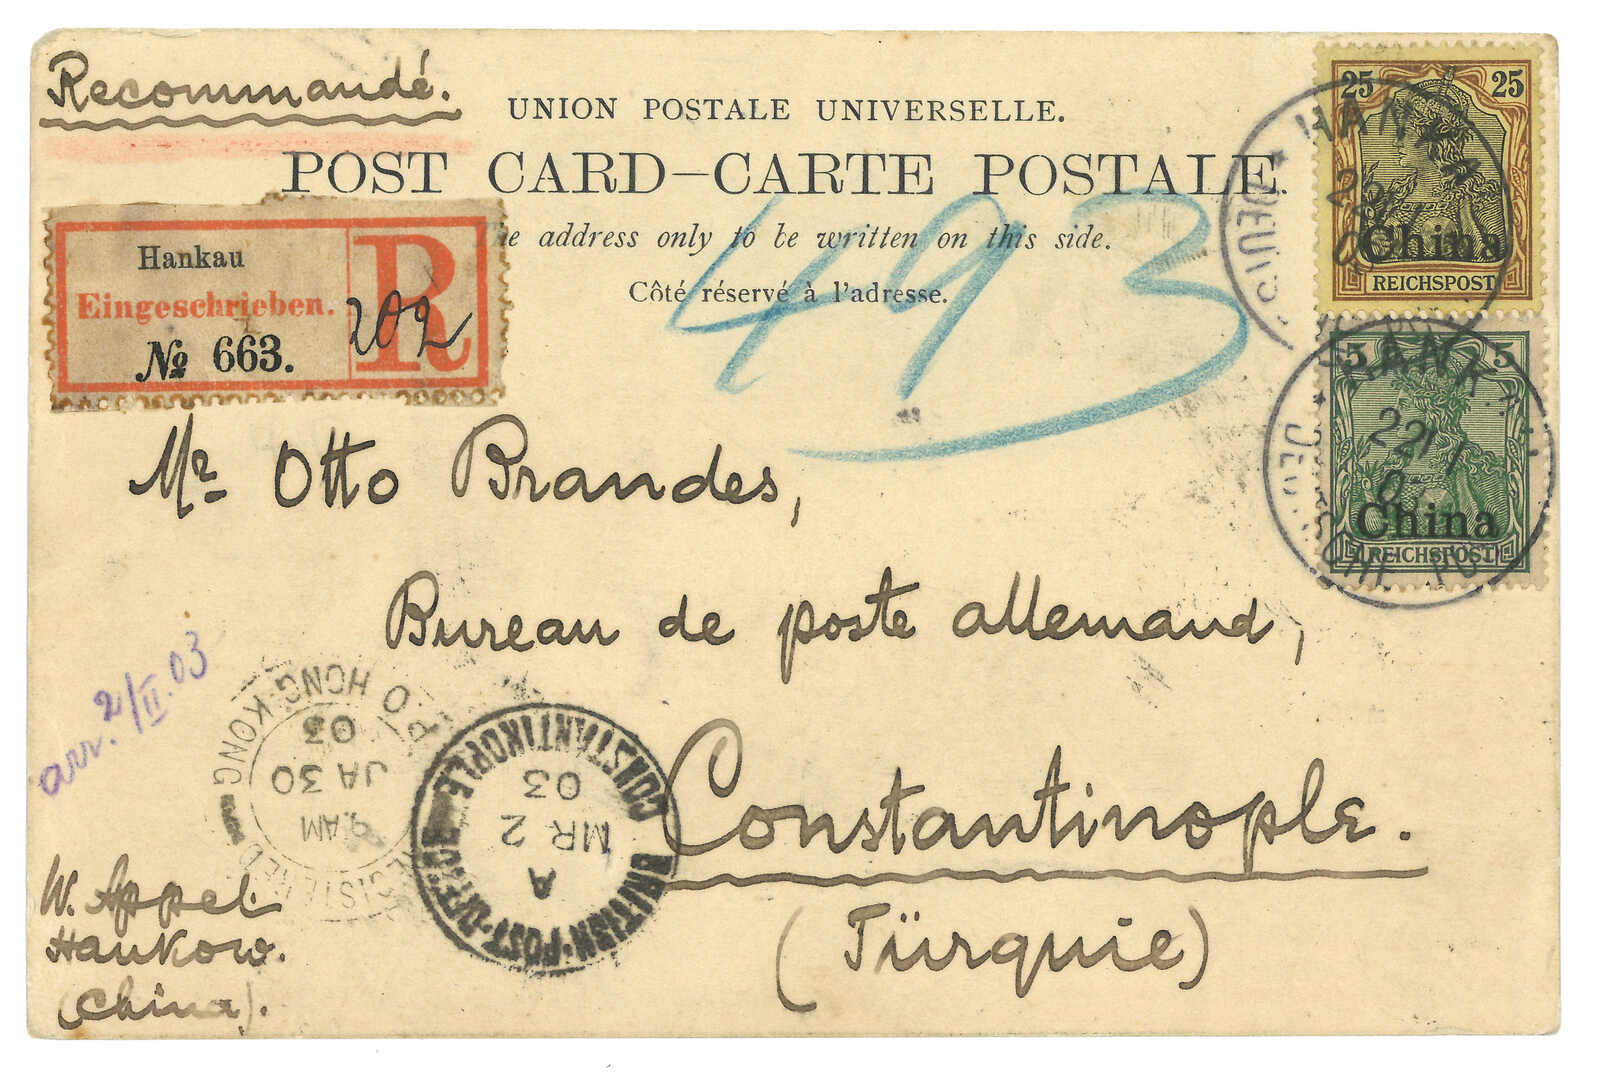 Recommandé.
UNION POSTALE UNIVERSELLE.
POST CARD–CARTE POSTALE.
address only to be written on this side.
Côté réservé à l'adresse.
493
Hankau
Eingeschrieben.
№ 663.
R
202
25 25
China
REICHSPOST
5 5
China
REICHSPOST
HANKAU
22/1
DEUTSCHE PO
Mr Otto Brandes,
Bureau de poste allemand,
Constantinople.
(Türquie)
arr. 2/II.03
REGISTERED G.P.O HONG-KONG
9 AM
JA 30
03
BRITISH·POST·OFFICE
CONSTANTINOPLE
A
MR 2
03
W. Appel
Hankow.
(China).